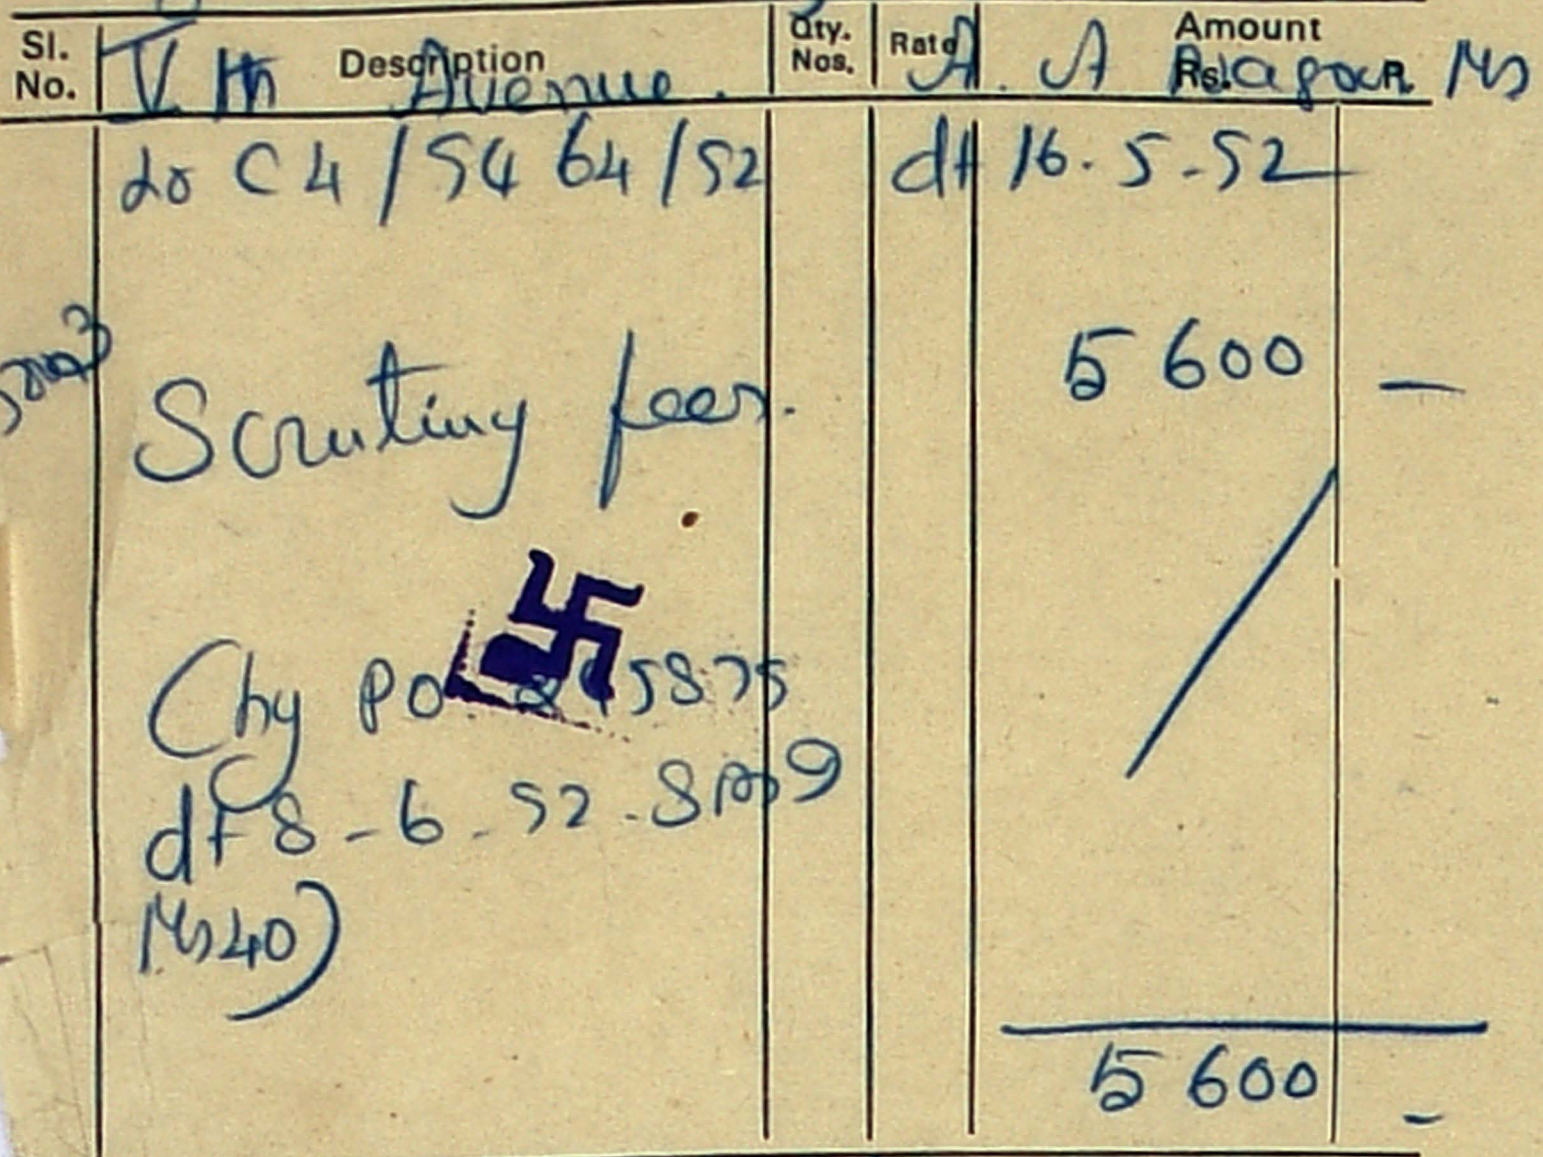 Sl. No. Description Qty. Nos. Rate Amount Rs. P.
V th Avenue. A. A Nagar Ms
Lo C4/5464/92 dt 16.5.92
Scrutiny fees. 5600 —
Chy PO 5875
dt 8-6-92
Ms 40)
5600 —